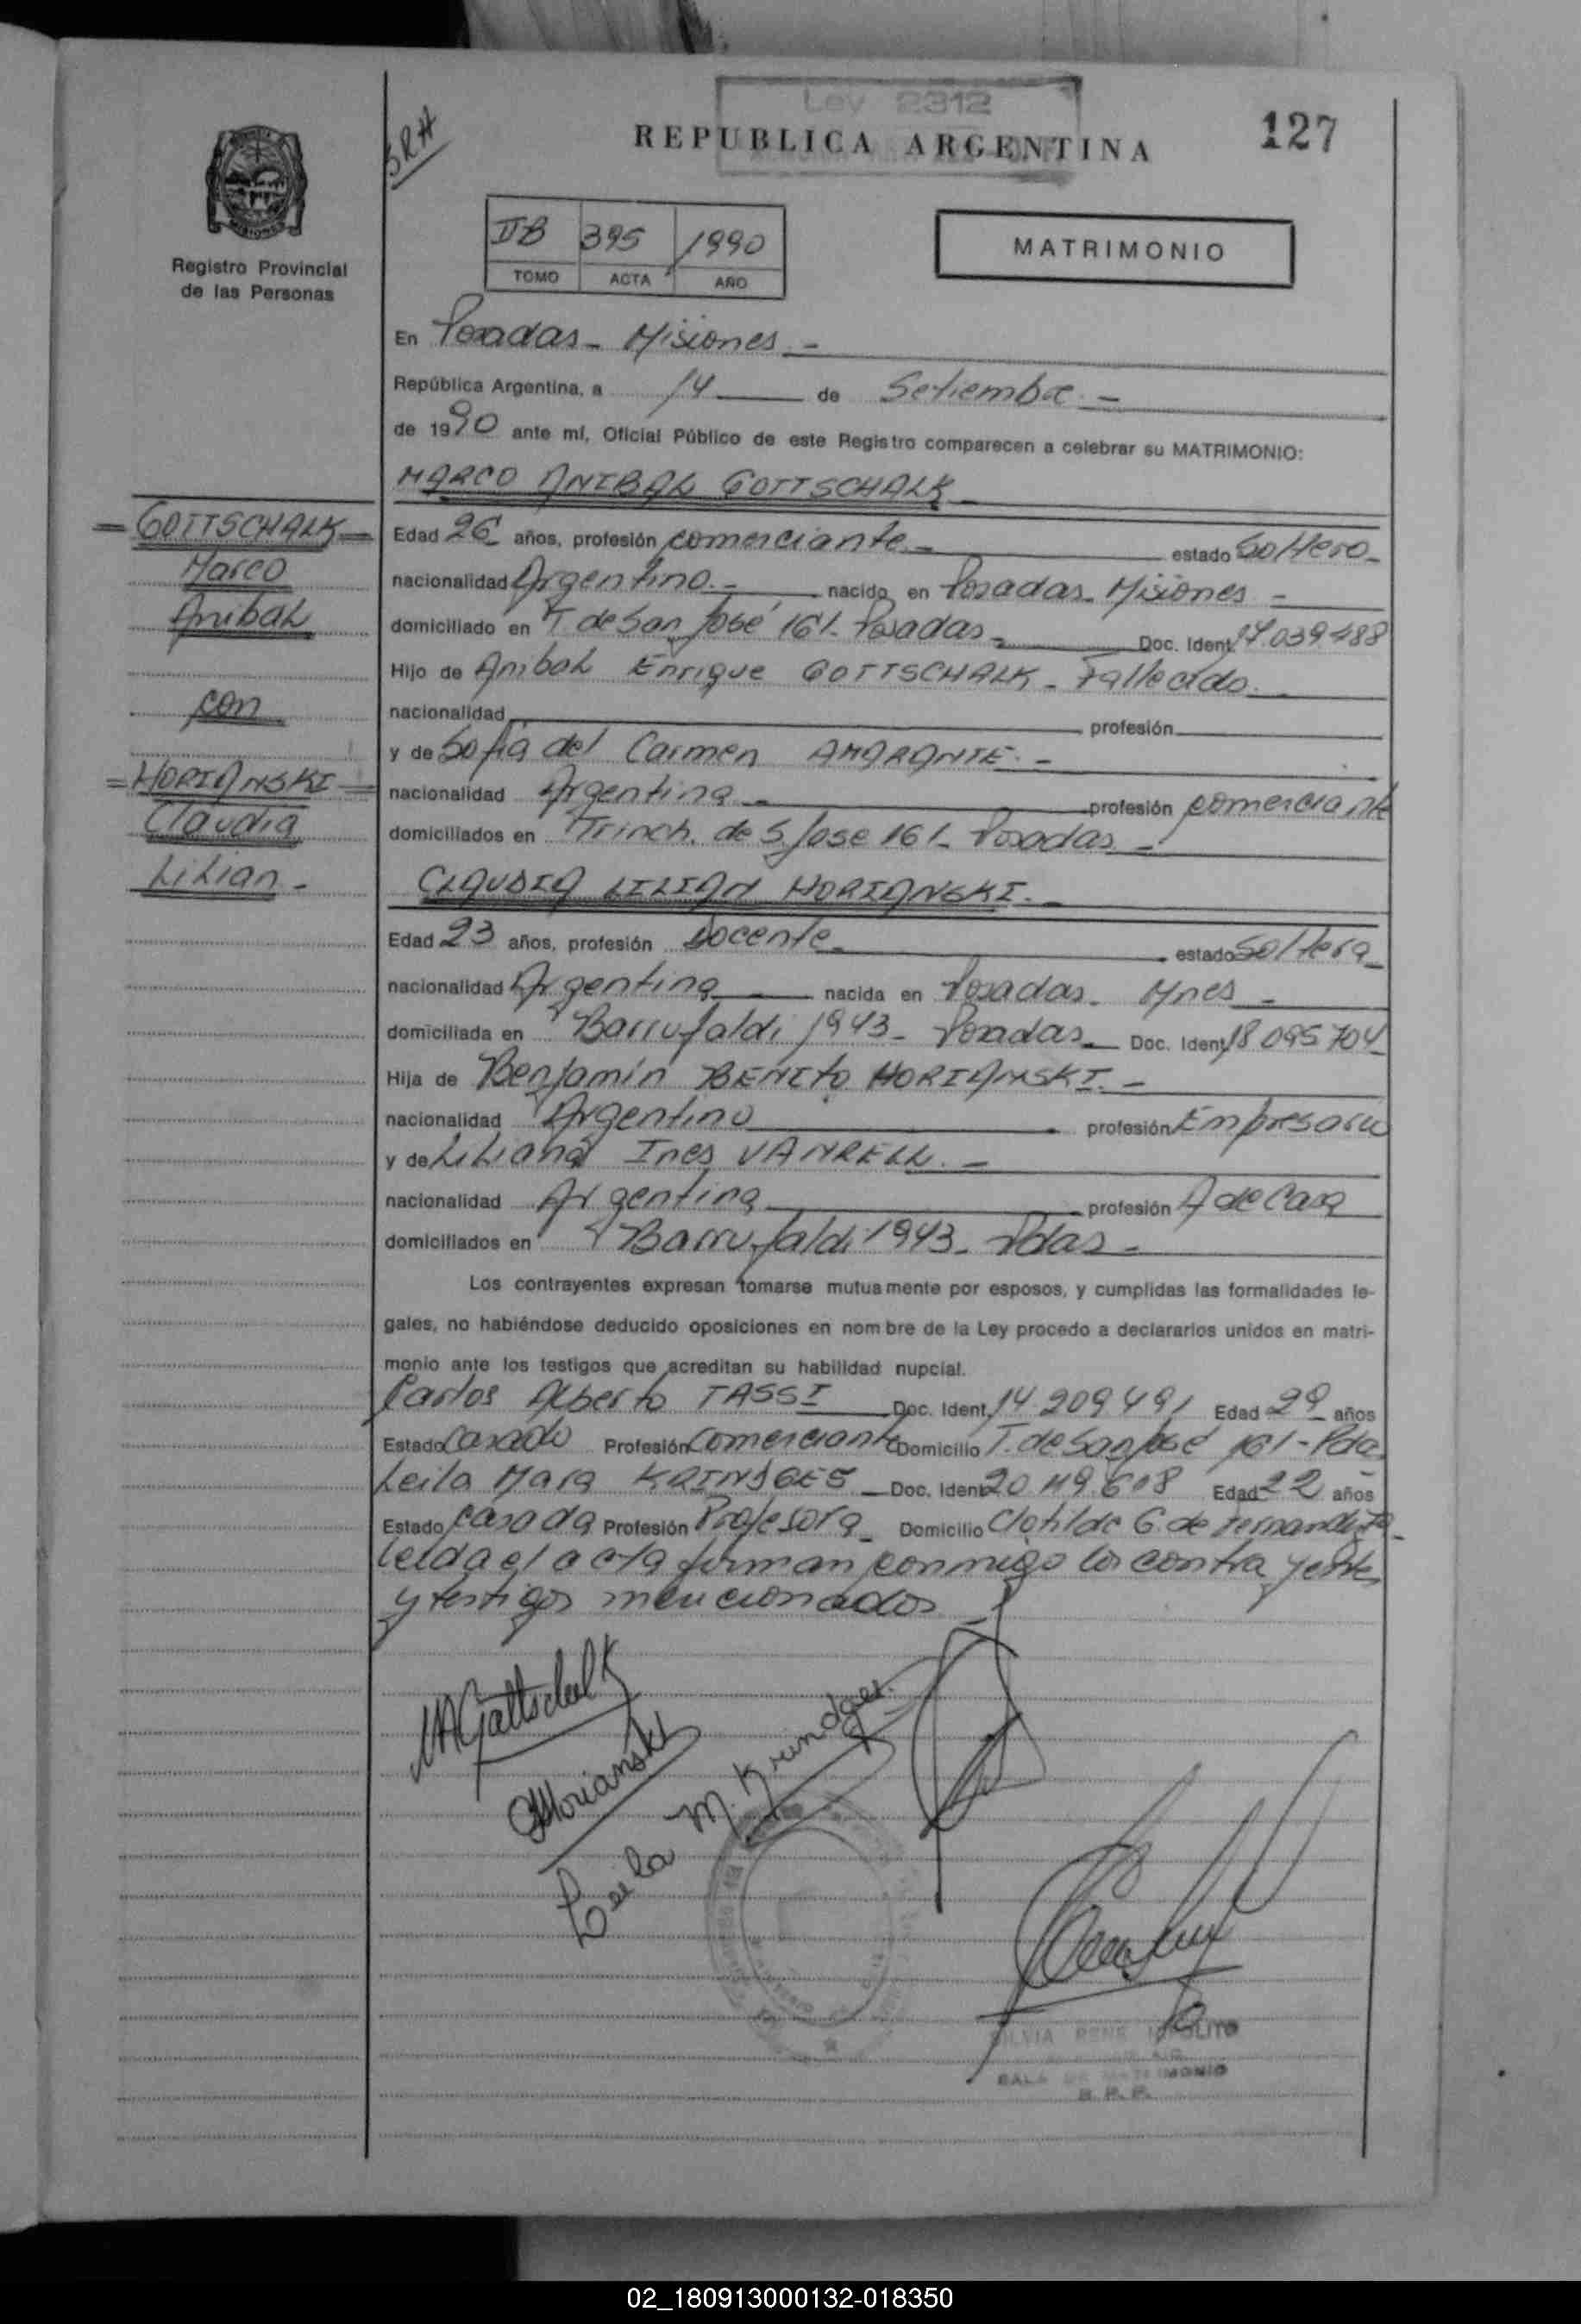 Ley 2312
SRH
REPUBLICA ARGENTINA
127
IIB 395 1990
TOMO ACTA AÑO
MATRIMONIO
MISIONES
Registro Provincial
de las Personas
En Posadas - Misiones -
República Argentina, a 14 de Setiembre -
de 1990 ante mí, Oficial Público de este Registro comparecen a celebrar su MATRIMONIO:
MARCO ANIBAL GOTTSCHALK
= GOTTSCHALK =
Marco
Anibal
con
= HORIANSKI =
Claudia
Lilian -
Edad 26 años, profesión comerciante - estado Soltero -
nacionalidad Argentino - nacido en Posadas - Misiones -
domiciliado en T de San José 161 - Posadas - Doc. Ident. 17.039.488
Hijo de Anibal Enrique GOTTSCHALK - Fallecido.
nacionalidad profesión
y de Sofia del Carmen AMARANTE. -
nacionalidad Argentina - profesión comerciante
domiciliados en Trinch. de S. Jose 161 - Posadas -
CLAUDIA LILIAN HORIANSKI. -
Edad 23 años, profesión Docente - estado Soltera -
nacionalidad Argentina - nacida en Posadas - Mnes -
domiciliada en Barrufaldi 1943 - Posadas - Doc. Ident. 18 095 704
Hija de Benjamín BENITO HORIANSKI. -
nacionalidad Argentino profesión Empresario
y de Liliana Ines VANRELL. -
nacionalidad Argentina profesión A de Casa
domiciliados en Barrufaldi 1943 - Pdas -
Los contrayentes expresan tomarse mutuamente por esposos, y cumplidas las formalidades le-
gales, no habiéndose deducido oposiciones en nombre de la Ley procedo a declararlos unidos en matri-
monio ante los testigos que acreditan su habilidad nupcial.
Carlos Alberto TASSI Doc. Ident. 14.209.491 Edad 29 años
Estado Casado Profesión Comerciante Domicilio T. de San José 161 - Pdas
Leila Mara KRINDGES Doc. Ident. 20.119.608 Edad 22 años
Estado Casada Profesión Profesora - Domicilio Clotilde G de Fernandez
leída el acta firman conmigo los contrayentes
y testigos mencionados -
MAGottschalk
Horianski
Leila M. Krindges
SILVIA RENE IPOLITO
SALA DE MATRIMONIO
R. P. P.
02_180913000132-018350